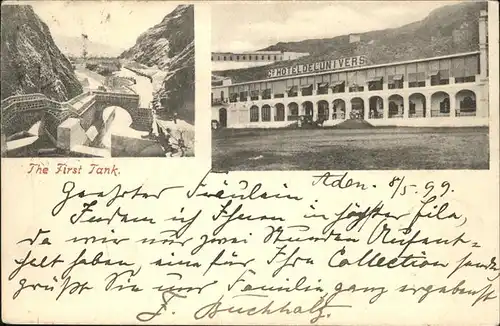 Gd HOTEL DE L'UNIVERS
The First Tank.
Aden. 8/5. 99.
Geehrtes Fräulein
Indem ich Ihnen in höchster Eile,
da wir nur zwei Stunden Aufent-
halt haben, eine für Ihre Collection sende
grüße Sie und Familie ganz ergebenst
F. Buchholz